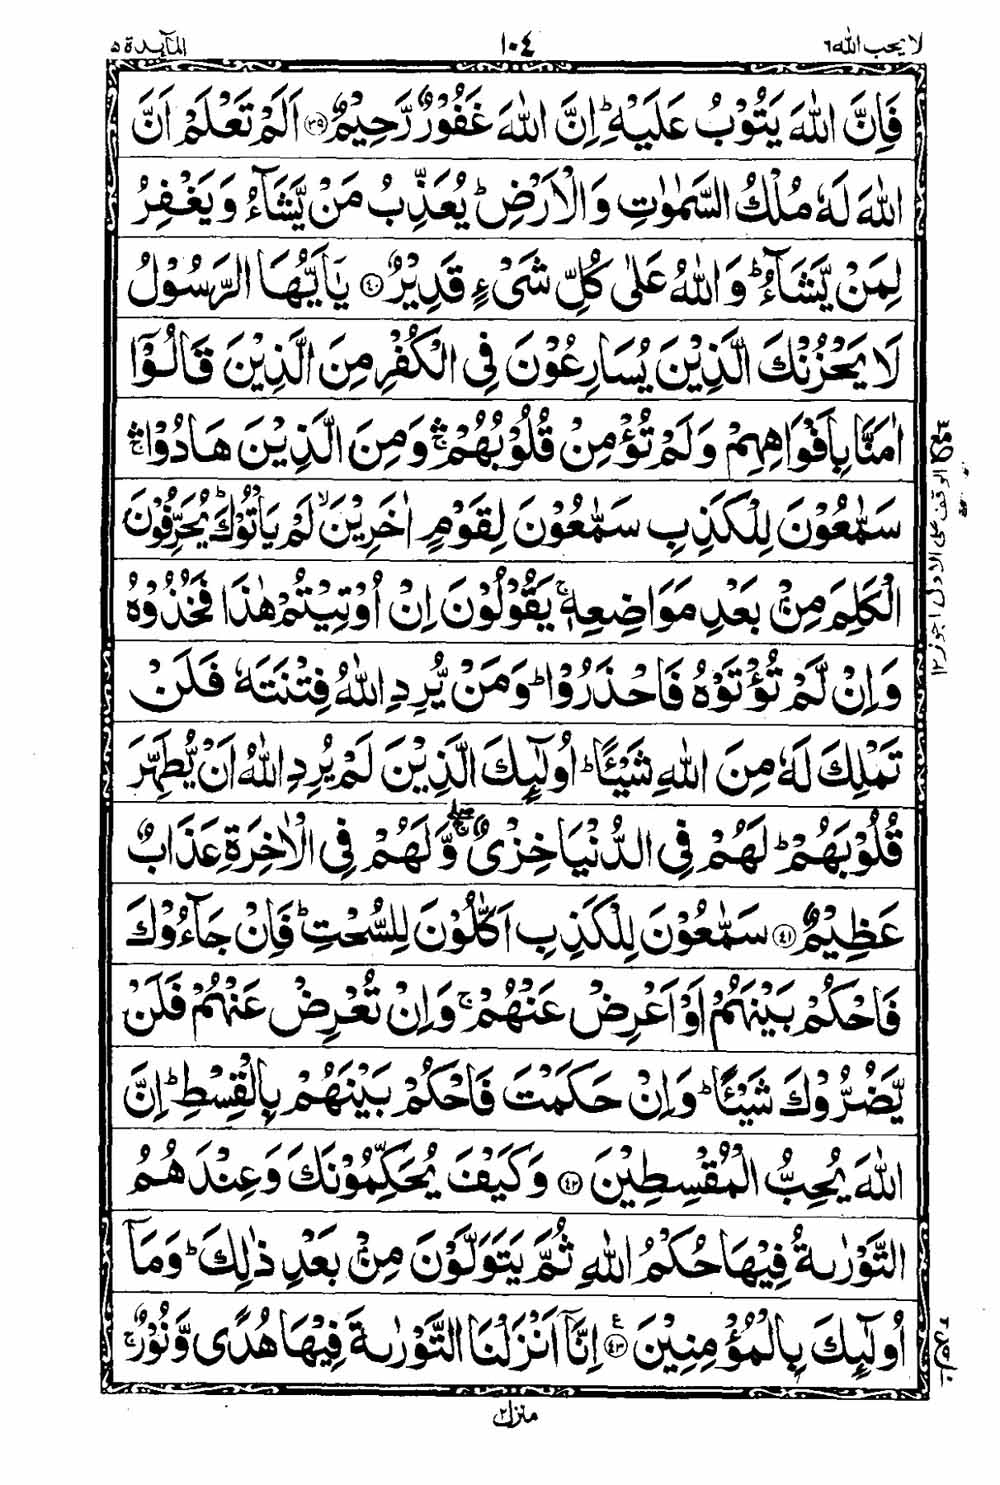 لا يحب الله ٦
١٠٤
المآىدة ٥
فَاِنَّ اللّٰهَ يَتُوْبُ عَلَيْهِ ؕ اِنَّ اللّٰهَ غَفُوْرٌ رَّحِيْمٌ ﴿۳۹﴾ اَلَمْ تَعْلَمْ اَنَّ
اللّٰهَ لَهٗ مُلْكُ السَّمٰوٰتِ وَالْاَرْضِ ؕ يُعَذِّبُ مَنْ يَّشَآءُ وَيَغْفِرُ
لِمَنْ يَّشَآءُ ؕ وَاللّٰهُ عَلٰى كُلِّ شَىْءٍ قَدِيْرٌ ﴿۴۰﴾ يٰۤاَيُّهَا الرَّسُوْلُ
لَا يَحْزُنْكَ الَّذِيْنَ يُسَارِعُوْنَ فِى الْكُفْرِ مِنَ الَّذِيْنَ قَالُوْۤا
اٰمَنَّا بِاَفْوَاهِهِمْ وَلَمْ تُؤْمِنْ قُلُوْبُهُمْ ۛۚ وَمِنَ الَّذِيْنَ هَادُوْا ۛۚ
سَمّٰعُوْنَ لِلْكَذِبِ سَمّٰعُوْنَ لِقَوْمٍ اٰخَرِيْنَ ۙ لَمْ يَاْتُوْكَ ؕ يُحَرِّفُوْنَ
الْكَلِمَ مِنْۢ بَعْدِ مَوَاضِعِهٖ ۚ يَقُوْلُوْنَ اِنْ اُوْتِيْتُمْ هٰذَا فَخُذُوْهُ
وَاِنْ لَّمْ تُؤْتَوْهُ فَاحْذَرُوْا ؕ وَمَنْ يُّرِدِ اللّٰهُ فِتْنَتَهٗ فَلَنْ
تَمْلِكَ لَهٗ مِنَ اللّٰهِ شَيْـًٔا ؕ اُولٰٓئِكَ الَّذِيْنَ لَمْ يُرِدِ اللّٰهُ اَنْ يُّطَهِّرَ
قُلُوْبَهُمْ ؕ لَهُمْ فِى الدُّنْيَا خِزْىٌ ۚۖ وَّلَهُمْ فِى الْاٰخِرَةِ عَذَابٌ
عَظِيْمٌ ﴿۴۱﴾ سَمّٰعُوْنَ لِلْكَذِبِ اَكّٰلُوْنَ لِلسُّحْتِ ؕ فَاِنْ جَآءُوْكَ
فَاحْكُمْ بَيْنَهُمْ اَوْ اَعْرِضْ عَنْهُمْ ۚ وَاِنْ تُعْرِضْ عَنْهُمْ فَلَنْ
يَّضُرُّوْكَ شَيْـًٔا ؕ وَاِنْ حَكَمْتَ فَاحْكُمْ بَيْنَهُمْ بِالْقِسْطِ ؕ اِنَّ
اللّٰهَ يُحِبُّ الْمُقْسِطِيْنَ ﴿۴۲﴾ وَكَيْفَ يُحَكِّمُوْنَكَ وَعِنْدَهُمُ
التَّوْرٰىةُ فِيْهَا حُكْمُ اللّٰهِ ثُمَّ يَتَوَلَّوْنَ مِنْۢ بَعْدِ ذٰلِكَ ؕ وَمَاۤ
اُولٰٓئِكَ بِالْمُؤْمِنِيْنَ ﴿۴۳﴾ ع اِنَّاۤ اَنْزَلْنَا التَّوْرٰىةَ فِيْهَا هُدًى وَّنُوْرٌ ۚ
الوقف على الاول اجوز ١٢
منزل ٢